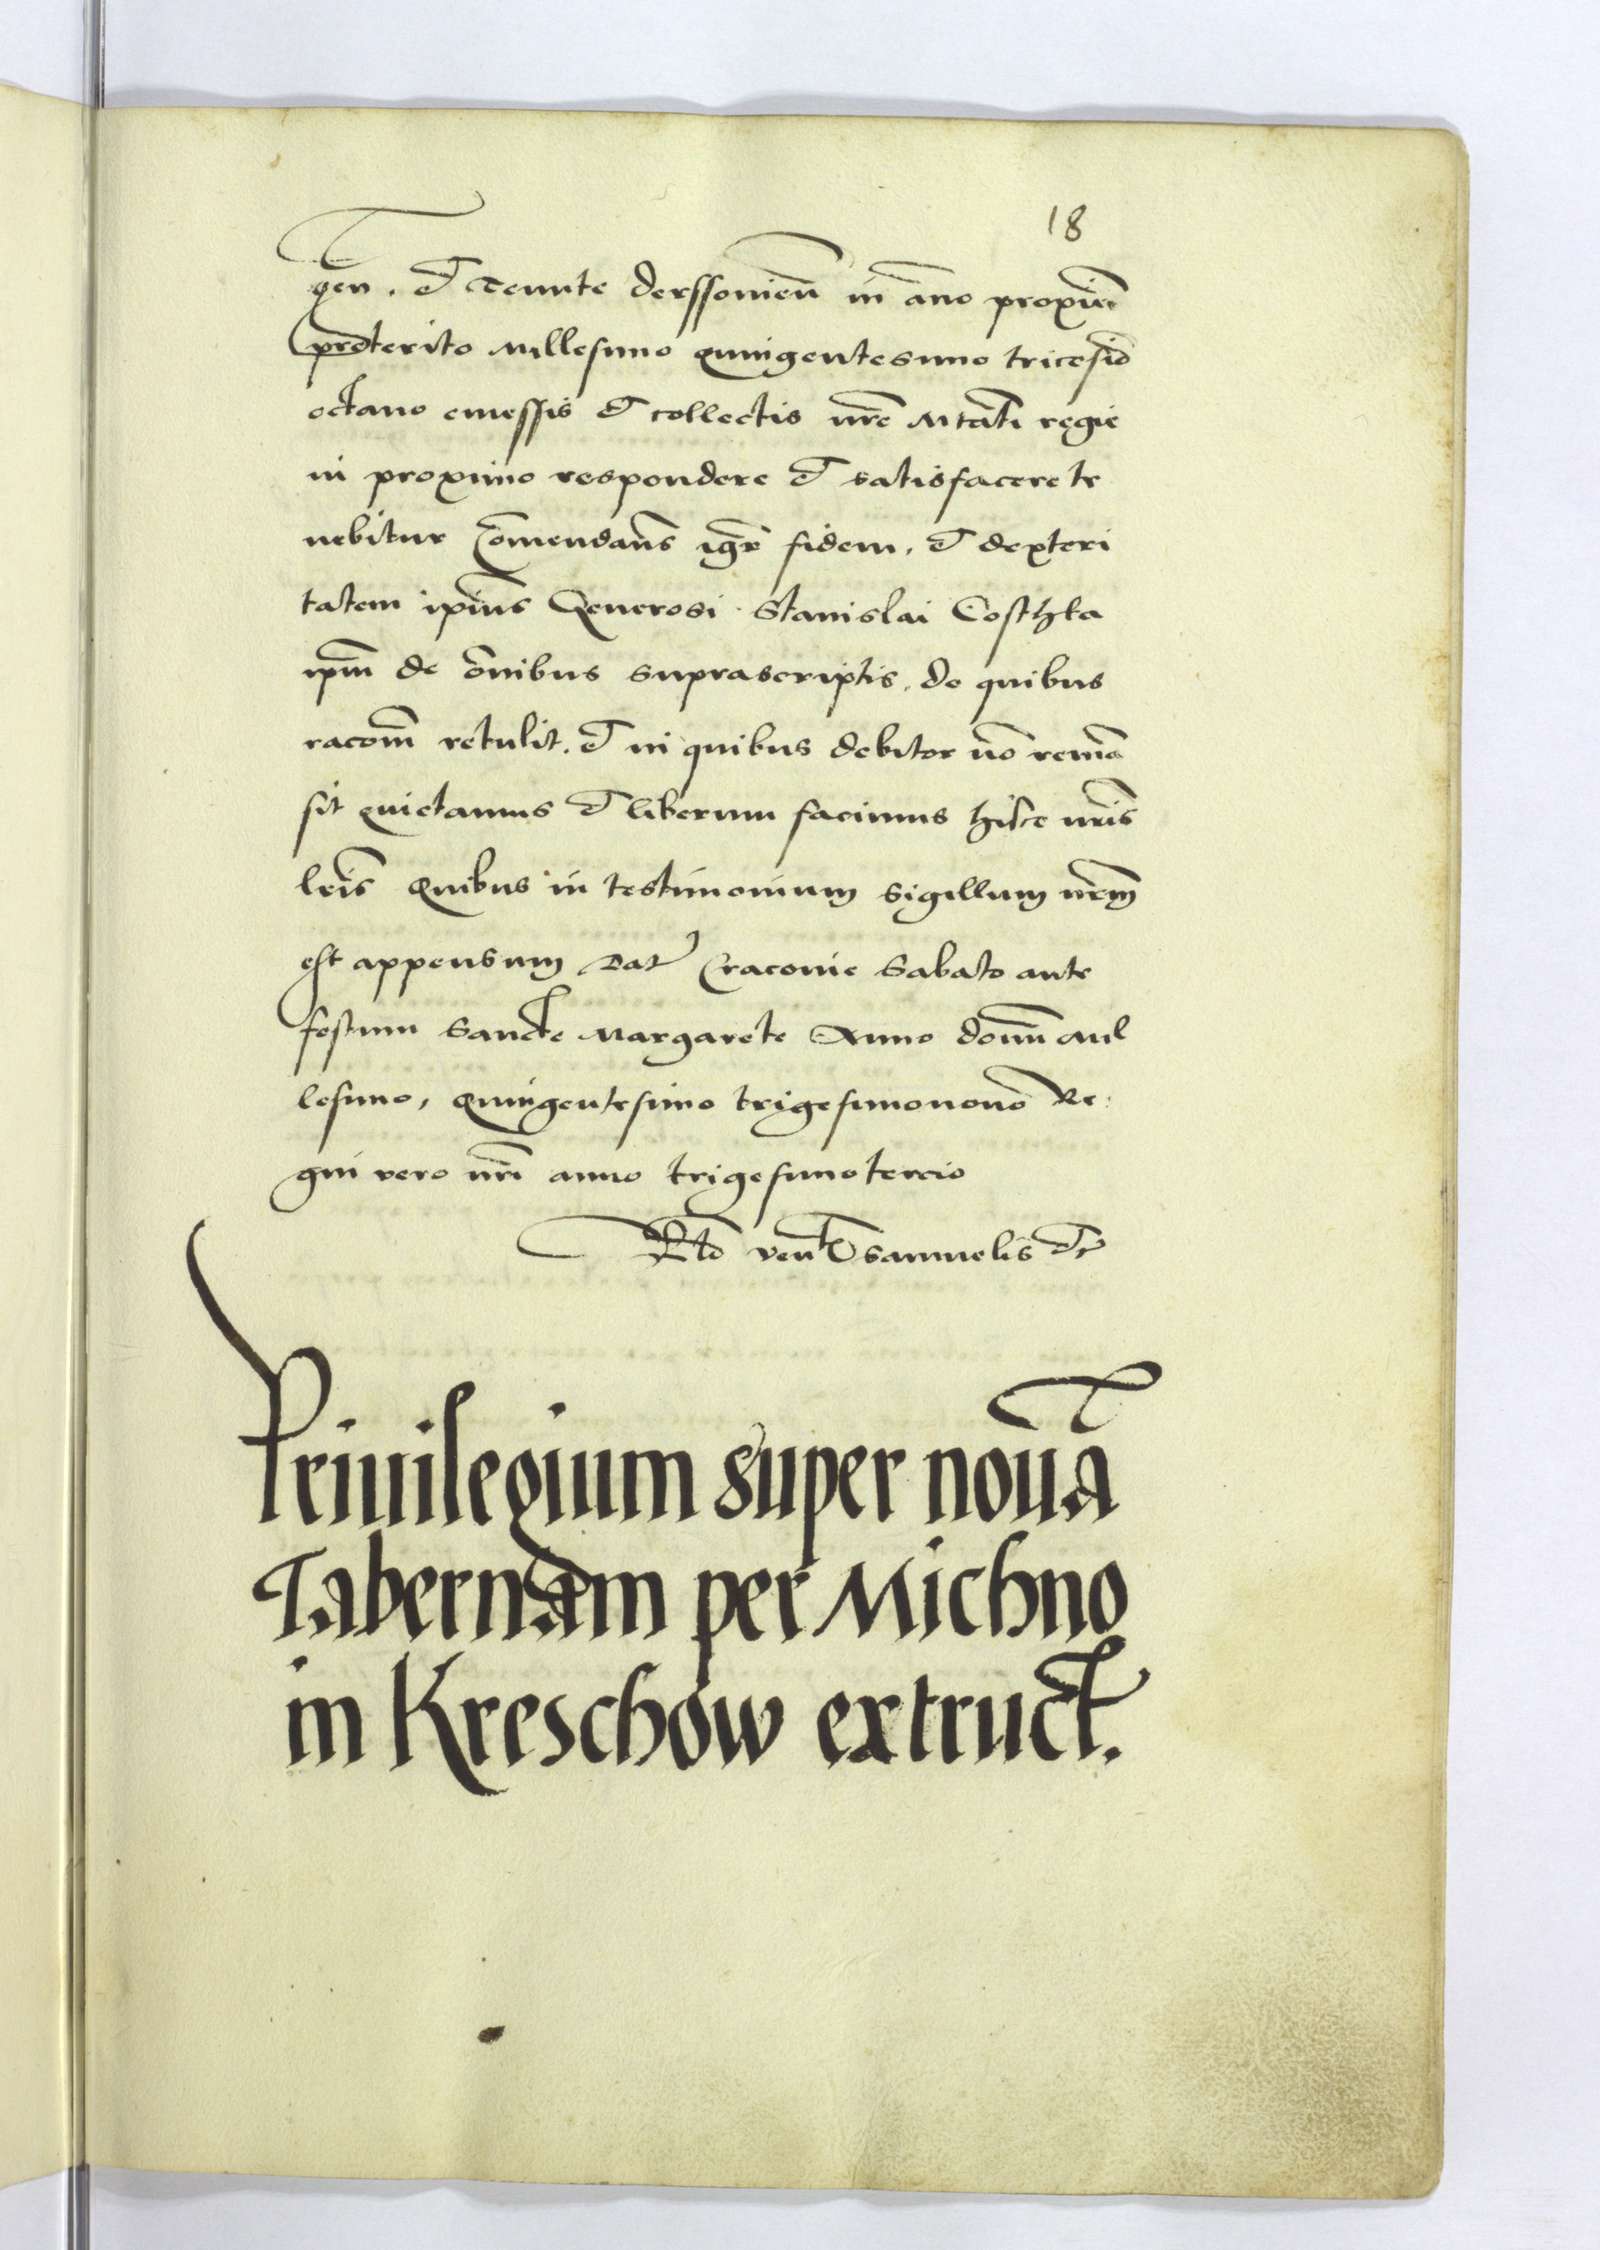 18
gen. et tenute derssonien in āno proxīe
preterito Millesimo quingentesimo tricesiō
octauo emessis et collectis nr̄e Mtati regie
in proximo respondere et satisfacere te
nebitur Comendan̄s igr̄ fidem, et dexteri
tatem ip̄ius Generosi Stanislai Costhka
ip̄m de om̄ibus suprascriptis, de quibus
racōm retulit, et in quibus debitor nō remā
sit quietamus et liberum facimus hisce nr̄is
lr̄is Quibus in testimonium sigillum nr̄m
est appensum Dat Cracouie Sabato ante
festum Sancte Margarete Anno domī Mil
lesimo, quingentesimo trigesimonono Re:
gni vero nr̄i anno trigesimotercio
Rtō ven samuelis etc
Priuilegium super nouā
Tabernam per Michno
in Kreschow extruct.